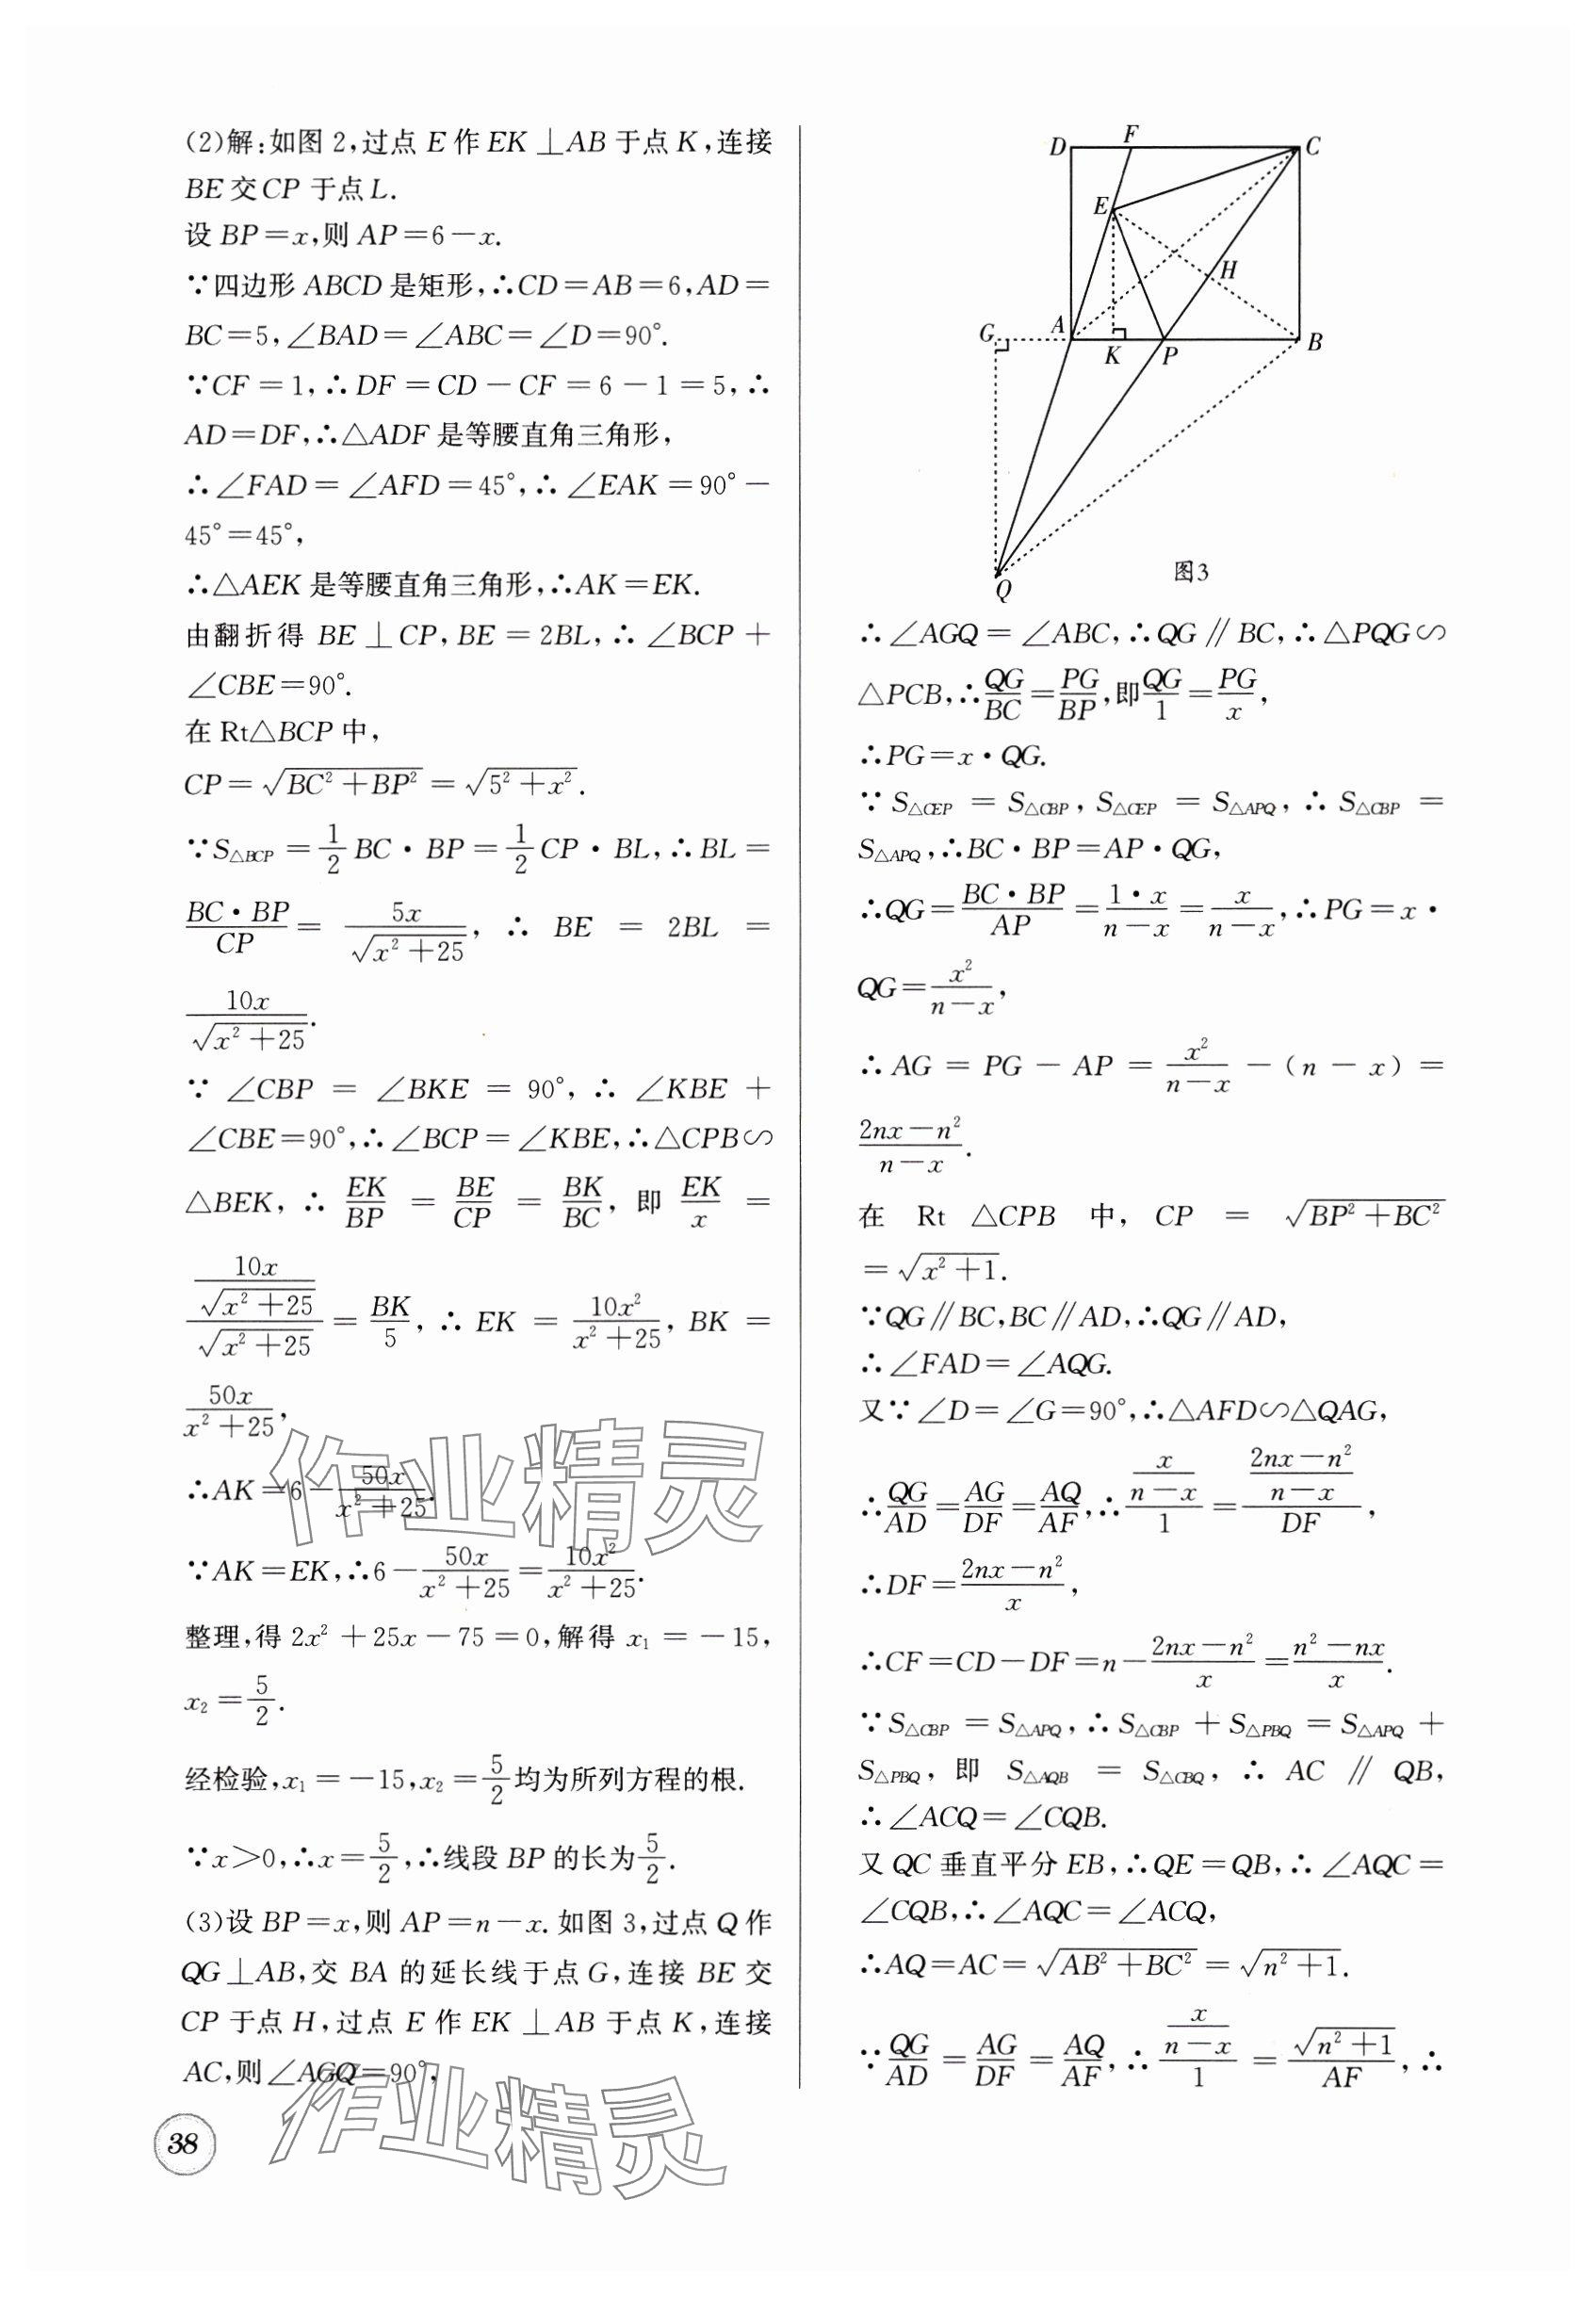 (2)解:如图2,过点E作EK⊥AB于点K,连接
BE交CP于点L.
设BP=x,则AP=6-x.
∵四边形ABCD是矩形,∴CD=AB=6,AD=
BC=5,∠BAD=∠ABC=∠D=90°.
∵CF=1,∴DF=CD-CF=6-1=5,∴
AD=DF,∴△ADF是等腰直角三角形,
∴∠FAD=∠AFD=45°,∴∠EAK=90°-
45°=45°,
∴△AEK是等腰直角三角形,∴AK=EK.
由翻折得BE⊥CP,BE=2BL,∴∠BCP+
∠CBE=90°.
在Rt△BCP中,
CP=√(BC²+BP²)=√(5²+x²).
∵S△BCP=1/2 BC·BP=1/2 CP·BL,∴BL=
(BC·BP)/CP=5x/√(x²+25),∴BE=2BL=
10x/√(x²+25).
∵∠CBP=∠BKE=90°,∴∠KBE+
∠CBE=90°,∴∠BCP=∠KBE,∴△CPB∽
△BEK,∴EK/BP=BE/CP=BK/BC,即EK/x=
(10x/√(x²+25))/√(x²+25)=BK/5,∴EK=10x²/(x²+25),BK=
50x/(x²+25),
∴AK=6-50x/(x²+25).
∵AK=EK,∴6-50x/(x²+25)=10x²/(x²+25).
整理,得2x²+25x-75=0,解得x₁=-15,
x₂=5/2.
经检验,x₁=-15,x₂=5/2均为所列方程的根.
∵x>0,∴x=5/2,∴线段BP的长为5/2.
(3)设BP=x,则AP=n-x.如图3,过点Q作
QG⊥AB,交BA的延长线于点G,连接BE交
CP于点H,过点E作EK⊥AB于点K,连接
AC,则∠AGQ=90°,
38
D F C
E
H
G A K P B
Q
图3
∴∠AGQ=∠ABC,∴QG∥BC,∴△PQG∽
△PCB,∴QG/BC=PG/BP,即QG/1=PG/x,
∴PG=x·QG.
∵S△CEP=S△CBP,S△CEP=S△APQ,∴S△CBP=
S△APQ,∴BC·BP=AP·QG,
∴QG=(BC·BP)/AP=(1·x)/(n-x)=x/(n-x),∴PG=x·
QG=x²/(n-x),
∴AG=PG-AP=x²/(n-x)-(n-x)=
(2nx-n²)/(n-x).
在Rt△CPB中,CP=√(BP²+BC²)
=√(x²+1).
∵QG∥BC,BC∥AD,∴QG∥AD,
∴∠FAD=∠AQG.
又∵∠D=∠G=90°,∴△AFD∽△QAG,
∴QG/AD=AG/DF=AQ/AF,∴(x/(n-x))/1=((2nx-n²)/(n-x))/DF,
∴DF=(2nx-n²)/x,
∴CF=CD-DF=n-(2nx-n²)/x=(n²-nx)/x.
∵S△CBP=S△APQ,∴S△CBP+S△PBQ=S△APQ+
S△PBQ,即S△AQB=S△CBQ,∴AC∥QB,
∴∠ACQ=∠CQB.
又QC垂直平分EB,∴QE=QB,∴∠AQC=
∠CQB,∴∠AQC=∠ACQ,
∴AQ=AC=√(AB²+BC²)=√(n²+1).
∵QG/AD=AG/DF=AQ/AF,∴(x/(n-x))/1=√(n²+1)/AF,∴
作业精灵
作业精灵